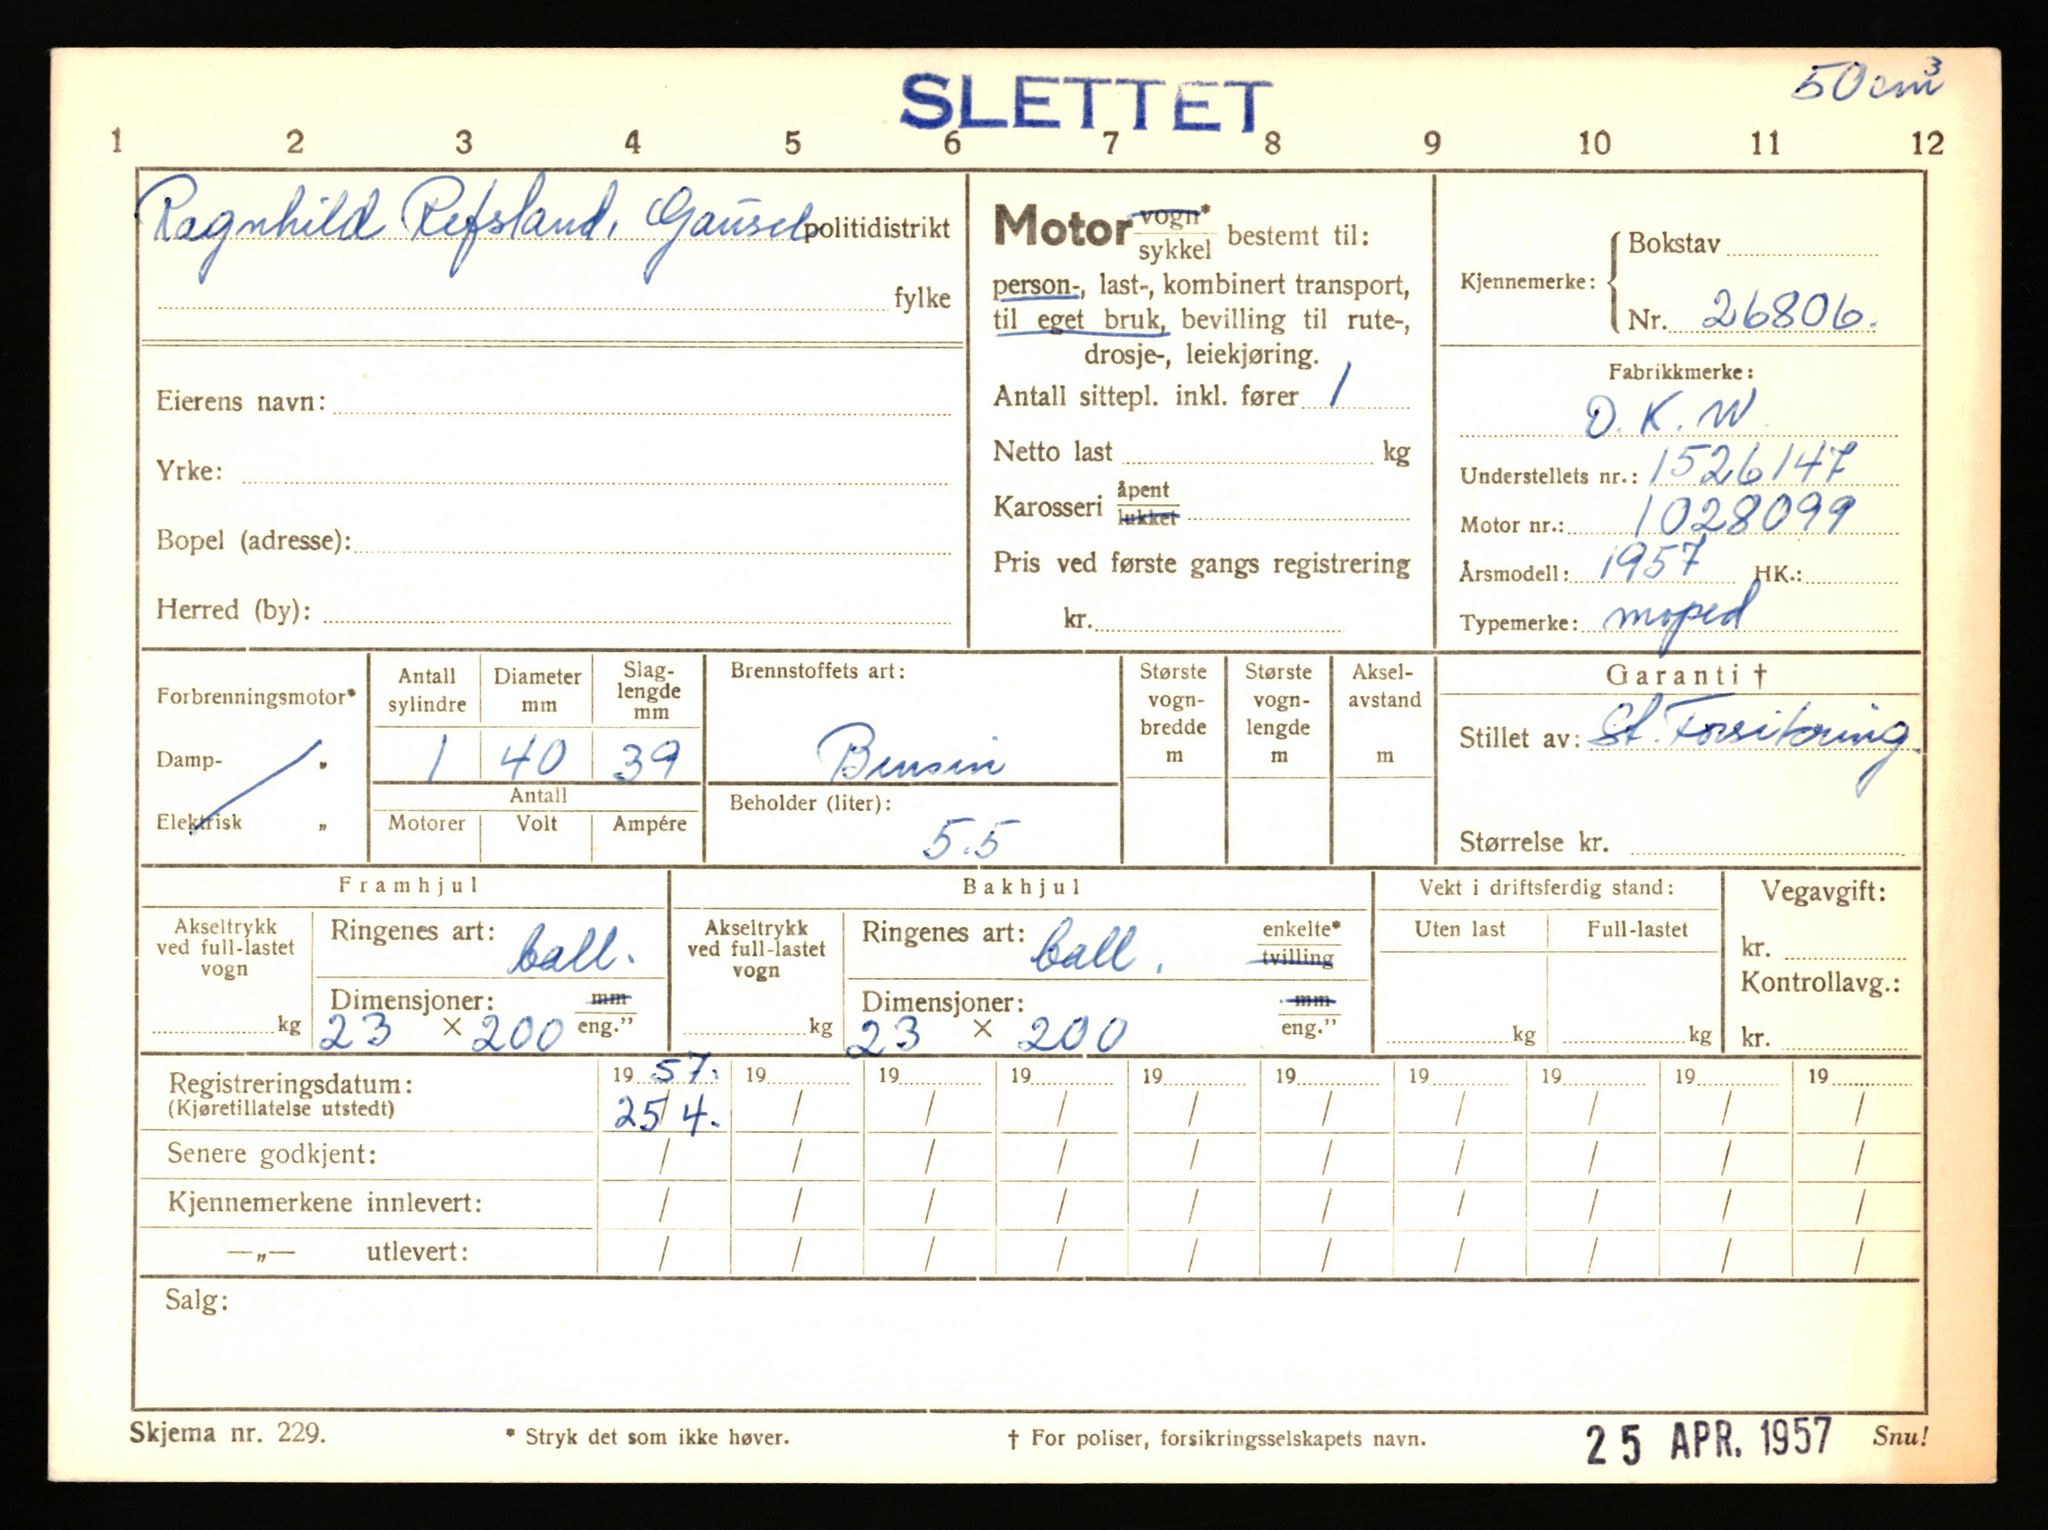 SLETTET
50 cm³
1 2 3 4 5 6 7 8 9 10 11 12
Ragnhild Refsland, Gausel politidistrikt
fylke
Eierens navn:
Yrke:
Bopel (adresse):
Herred (by):
Motor vogn* / sykkel bestemt til:
person-, last-, kombinert transport,
til eget bruk, bevilling til rute-,
drosje-, leiekjøring.
Antall sittepl. inkl. fører 1
Netto last kg
Karosseri åpent / lukket
Pris ved første gangs registrering
kr.
Kjennemerke: { Bokstav
Nr. 26806.
Fabrikkmerke:
D. K. W.
Understellets nr.: 1526147
Motor nr.: 1028099
Årsmodell: 1957 HK.:
Typemerke: moped
Forbrenningsmotor*
Damp- „
Elektrisk „
Antall sylindre
Diameter mm
Slag-
lengde
mm
1 40 39
Antall
Motorer Volt Ampére
Brennstoffets art:
Bensin
Beholder (liter):
5.5
Største
vogn-
bredde
m
Største
vogn-
lengde
m
Aksel-
avstand
m
Garanti †
Stillet av: St. Forsikring.
Størrelse kr.
Framhjul
Akseltrykk
ved full-lastet
vogn
kg
Ringenes art: ball.
Dimensjoner: mm / eng."
23 × 200
Bakhjul
Akseltrykk
ved full-lastet
vogn
kg
Ringenes art: ball. enkelte* / tvilling
Dimensjoner: mm / eng."
23 × 200
Vekt i driftsferdig stand:
Uten last Full-lastet
kg kg
Vegavgift:
kr.
Kontrollavg.:
kr.
Registreringsdatum: 19 57. 19 19 19 19 19 19 19 19 19
(Kjøretillatelse utstedt) 25/4. / / / / / / / / /
Senere godkjent: / / / / / / / / / /
Kjennemerkene innlevert: / / / / / / / / / /
—„— utlevert: / / / / / / / / / /
Salg:
Skjema nr. 229. * Stryk det som ikke høver. † For poliser, forsikringsselskapets navn. 25 APR. 1957 Snu!